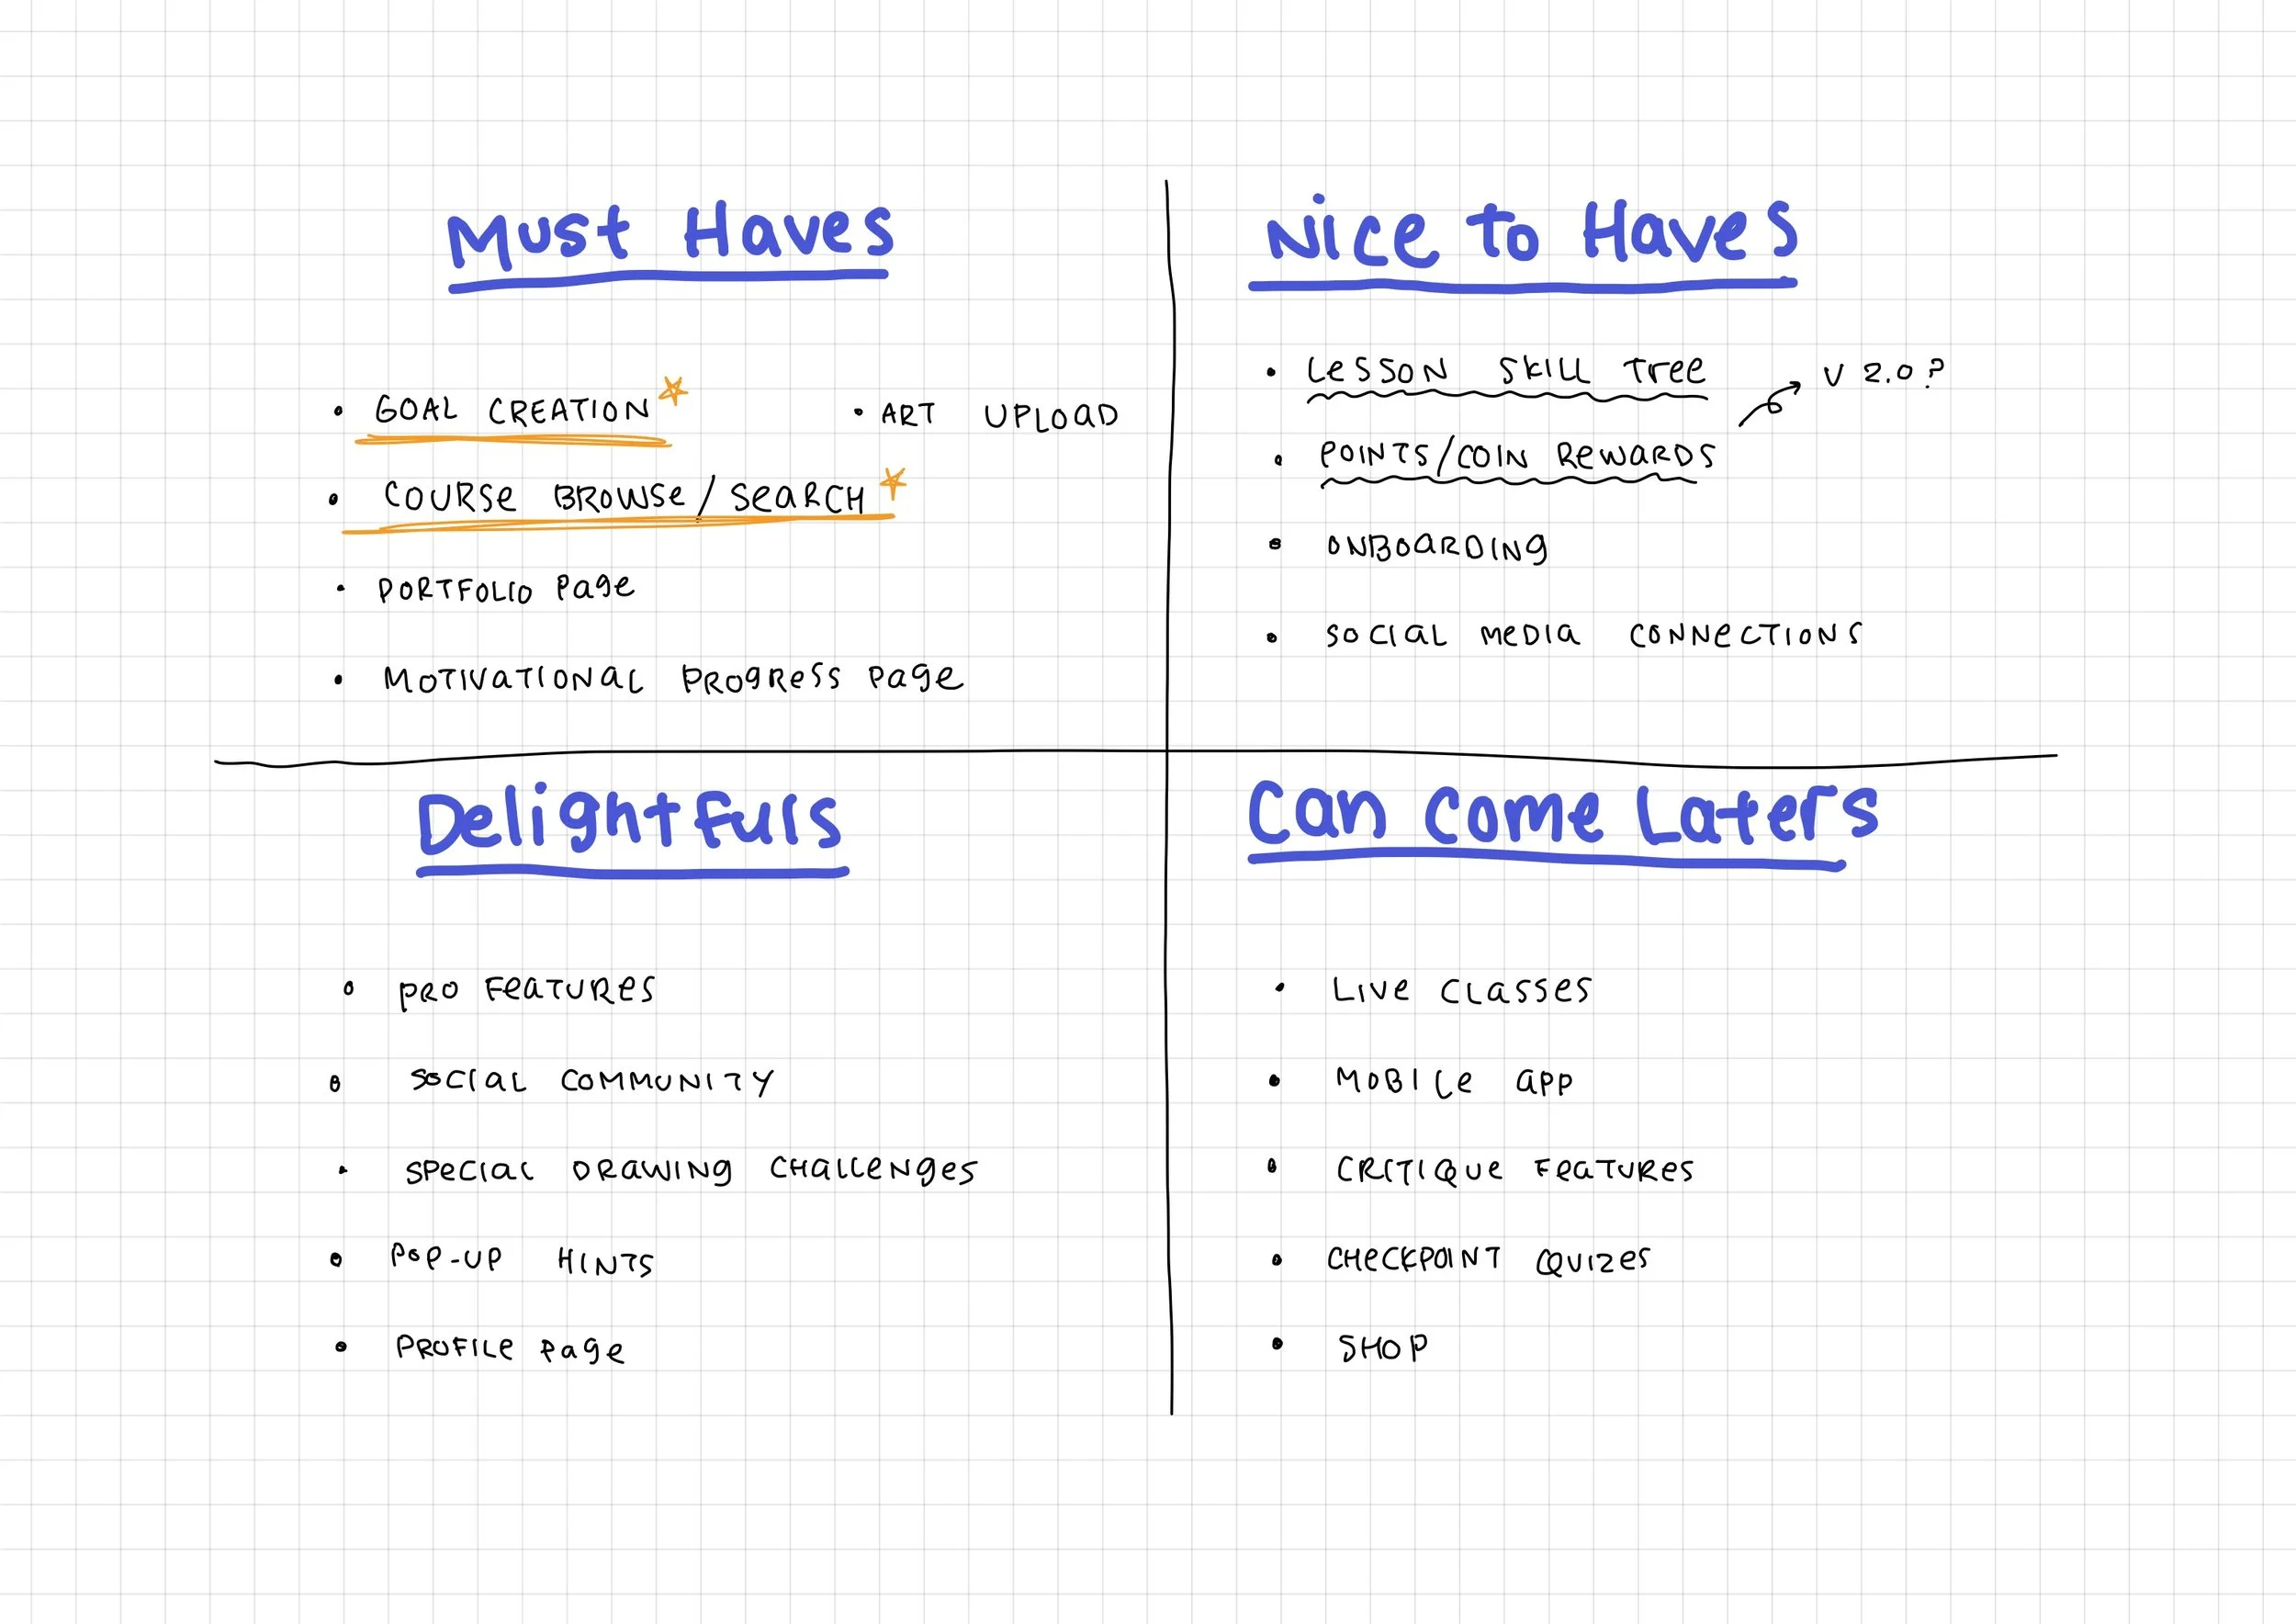 Must Haves
• GOAL CREATION
• ART UPLOAD
• COURSE BROWSE/SEARCH
• PORTFOLIO Page
• MOTIVATIONAL PROGRESS Page
Nice to Haves
• LESSON SKILL TREE
V 2.0?
• POINTS/COIN REWARDS
• ONBOARDING
• SOCIAL MEDIA CONNECTIONS
Delightfuls
• PRO FEATURES
• SOCIAL COMMUNITY
• SPECIAL DRAWING CHALLENGES
• POP-UP HINTS
• PROFILE Page
Can Come Laters
• LIVE CLASSES
• MOBILE APP
• CRITIQUE FEATURES
• CHECKPOINT QUIZES
• SHOP